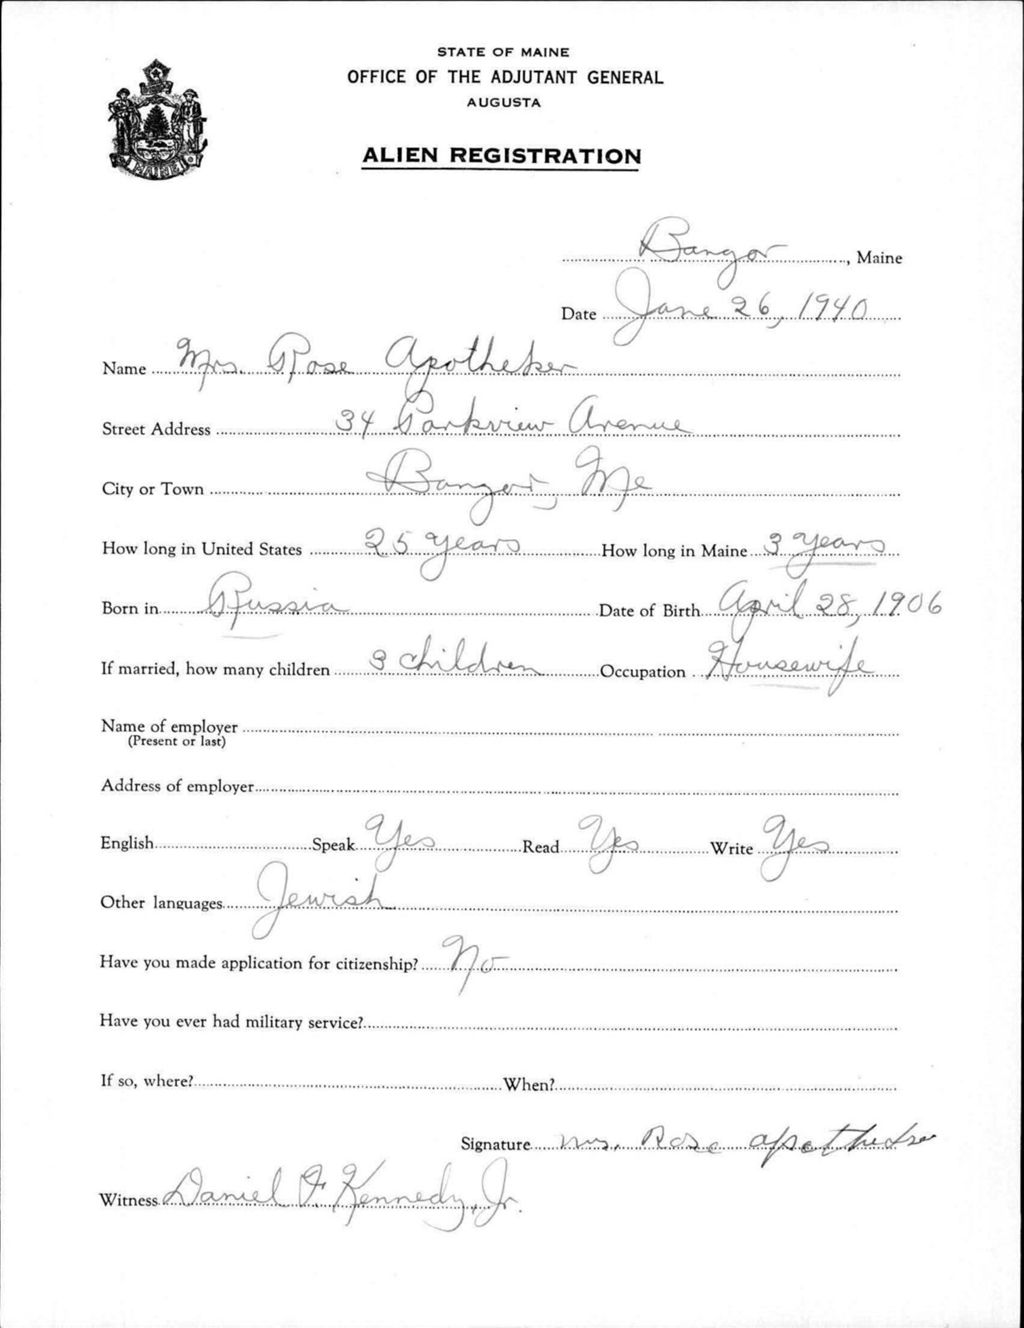 STATE OF MAINE
OFFICE OF THE ADJUTANT GENERAL
AUGUSTA
ALIEN REGISTRATION
MAINE
Bangor, Maine
Date June 26, 1940
Name Mrs. Rose Apotheker
Street Address 34 Parkview Avenue
City or Town Bangor, Me
How long in United States 25 years How long in Maine 3 years
Born in Russia Date of Birth April 28, 1906
If married, how many children 3 children Occupation Housewife
Name of employer
(Present or last)
Address of employer
English Speak Yes Read Yes Write Yes
Other languages Jewish
Have you made application for citizenship? No
Have you ever had military service?
If so, where? When?
Signature Mrs. Rose Apotheker
Witness Daniel F. Kennedy, Jr.